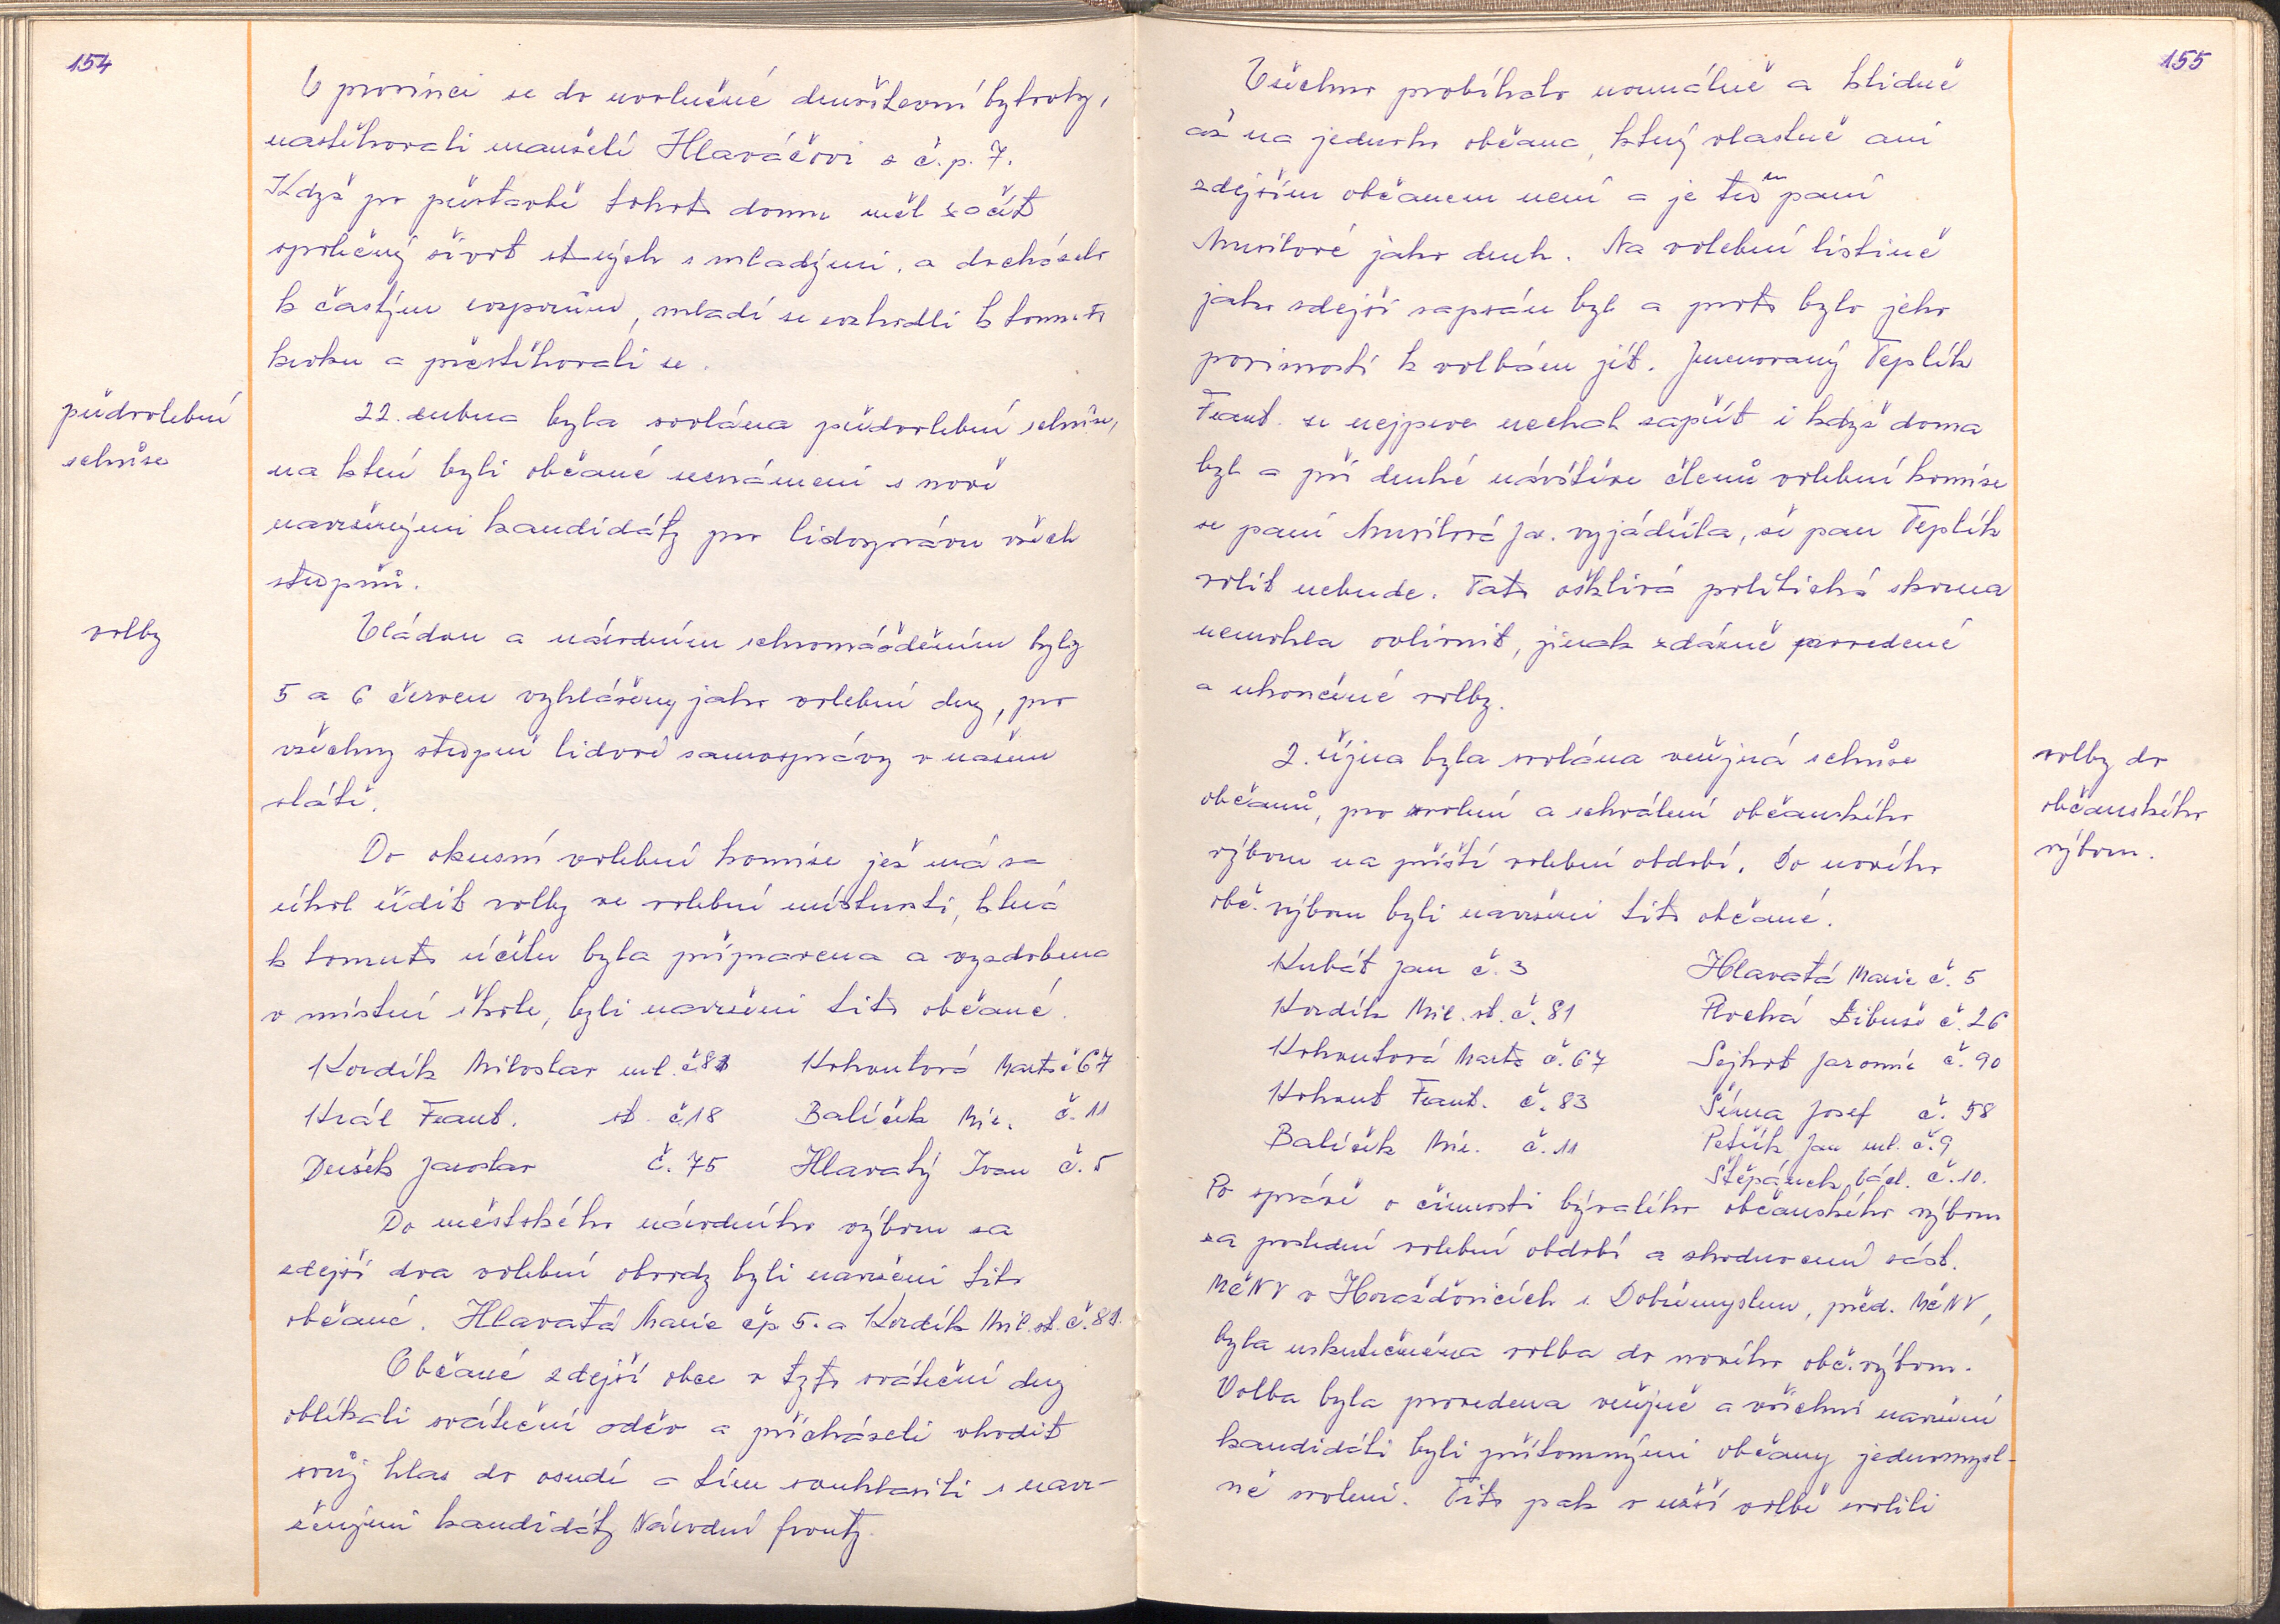 154
V prosinci se do uvolněné družstevní bytovky,
nastěhovali manželé Hlaváčovi z č.p. 7.
Když po přestavbě tohoto domu měl začít
společný život starých s mladými, a docházelo
k častým rozporům, mladí se rozhodli k tomuto
kroku a přestěhovali se.
předvolební
schůze
22. dubna byla svolána předvolební schůze,
na které byli občané seznámeni s nově
navrženými kandidáty pro lidosprávu všech
stupňů.
volby
Vládou a národním schromážděním byly
5 a 6 červen vyhlášeny jako volební dny, pro
všechny stupně lidové samosprávy v našem
státě.
Do okrsní volební komise jež má za
úkol řídit volby ve volební místnosti, která
k tomuto účelu byla připravena a vyzdobena
v místní škole, byli navrženi tito občané.
Kordík Miloslav ml. č 81 Kohoutová Marta č 67
Král Frant. st. č 18 Balíček Mir. č. 11
Dušek Jaroslav č. 75 Hlavatý Ivan č. 5
Do městského národního výboru za
zdejší dva volební obvody byli navrženi tito
občané. Hlavatá Marie čp. 5. a Kordík Mil. st. č. 81.
Občané zdejší obce v tyto sváteční dny
oblékali sváteční oděv a přicházeli vhodit
svůj hlas do osudí a tím souhlasili s navr-
ženými kandidáty Národní fronty.
155
Všechno probíhalo normálně a klidně
až na jednoho občana, který vlastně ani
zdejším občanem není a je teď u paní
Musilové jako druh. Na volební listině
jako zdejší zapsán byl a proto bylo jeho
povinností k volbám jít. Jmenovaný Teplík
Frant. se nejprve nechal zapřít i když doma
byl a při druhé návštěvě členů volební komise
se paní Musilová Jar. vyjádřila, že pan Teplík
volit nebude. Tato ošklivá politická skvrna
nemohla ovlivnit, jinak zdárně provedené
a ukončené volby.
volby do
občanského
výboru.
2. října byla svolána veřejná schůze
občanů, pro zvolení a schválení občanského
výboru na příští volební období. Do nového
obč. výboru byli navrženi tito občané.
Kubát Jan č. 3 Hlavatá Marie č. 5
Kordík Mil. st. č. 81 Plochá Libuše č. 26
Kohoutová Marta č. 67 Sejkot Jaromír č. 90
Kohout Frant. č. 83 Šíma Josef č. 58
Balíček Mir. č. 11 Petřík Jan ml. č. 9
Štěpánek Václ. č. 10.
Po zprávě o činnosti bývalého občanského výboru
za poslední volební období a zhodnocení zást.
MěNV v Horažďovicích s. Dobřemyslem, před. MěNV,
byla uskutečněna volba do nového obč. výboru.
Volba byla provedena veřejně a všichni navržení
kandidáti byli přítomnými občany jednomysl-
ně zvoleni. Tito pak v užší volbě zvolili